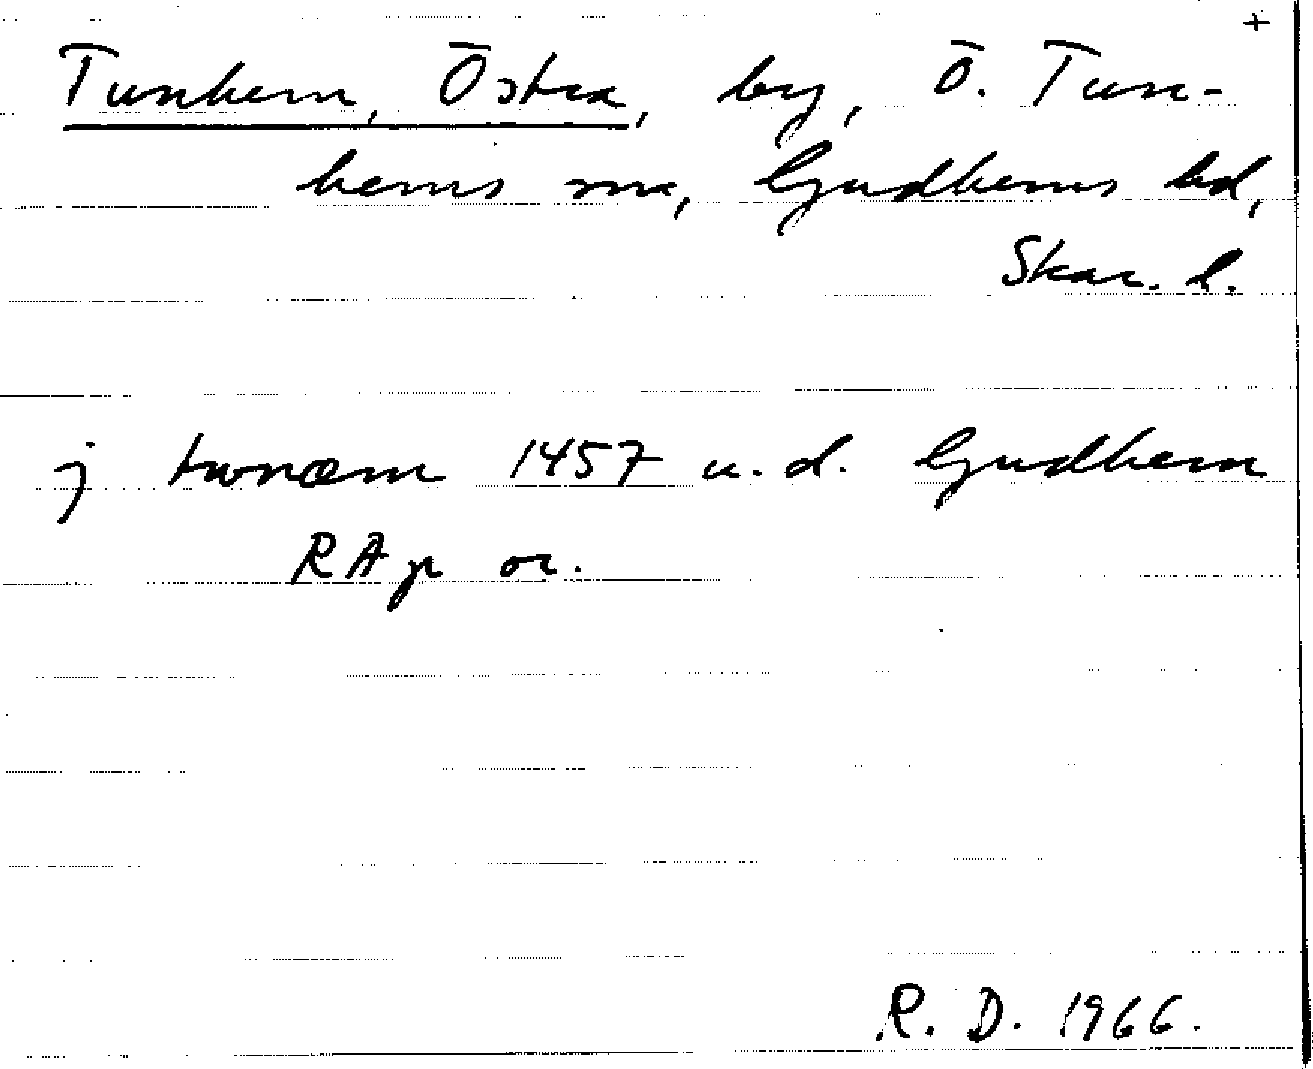 +
Tunhem, Östra, by, Ö. Tun-
hems sn, Gudhems hd,
Skar. l.
j twnæm 1457 u. d. Gudhem
RAp or.
R. D. 1966.